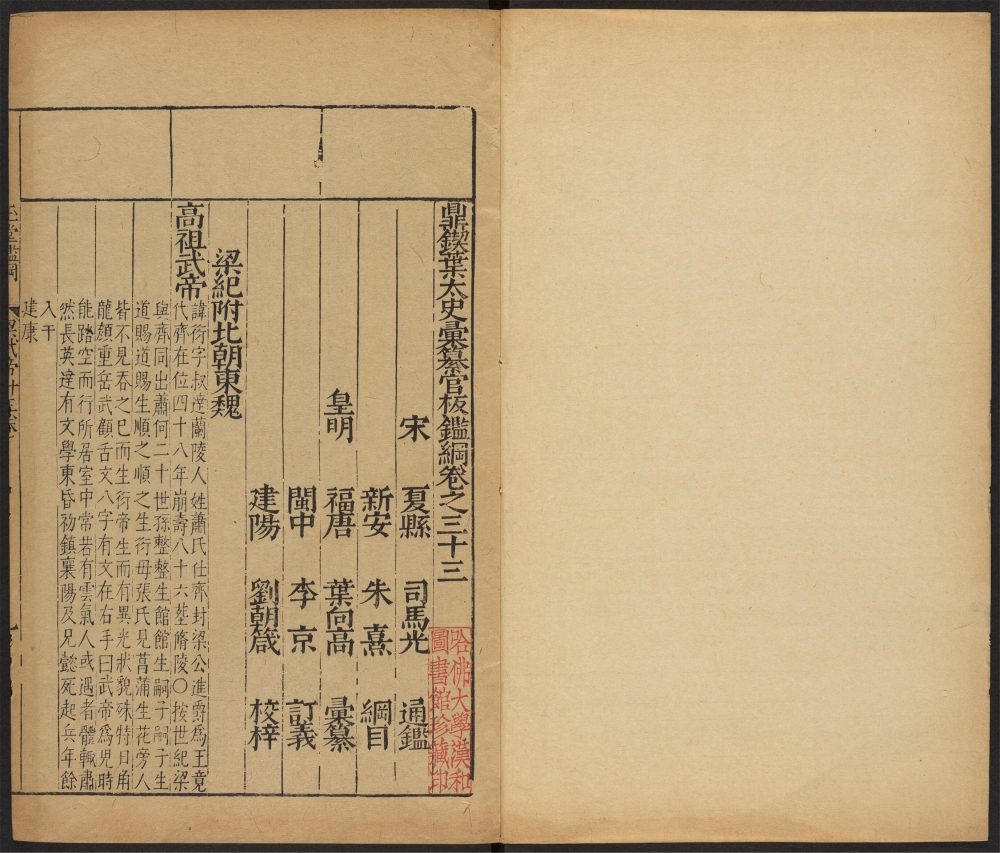 鼎鍥葉太史彙纂官板鑑綱卷之三十三
宋 夏縣 司馬光 通鑑
新安 朱熹 綱目
皇明 福唐 葉向高 彙纂
閩中 李京 訂義
建陽 劉朝箴 校梓
梁紀附北朝東魏
高祖武帝
諱衍字叔達蘭陵人姓蕭氏仕齊封梁公進爵為王竟
代齊在位四十八年崩壽八十六塟脩陵○按世紀梁
與齊同出蕭何二十世孫整整生館館生嗣子嗣子生
道賜道賜生順之順之生衍母張氏見菖蒲生花旁人
皆不見吞之已而生衍帝生而有異光狀貌殊特日角
龍顔重岳武顧舌文八字有文在右手曰武帝為兒時
能踏空而行所居室中常若有雲氣人或遇者體輒肅
然長英達有文學東昏初鎮襄陽及兄懿死起兵年餘
入于
建康
哈佛大學漢和
圖書館珍藏印